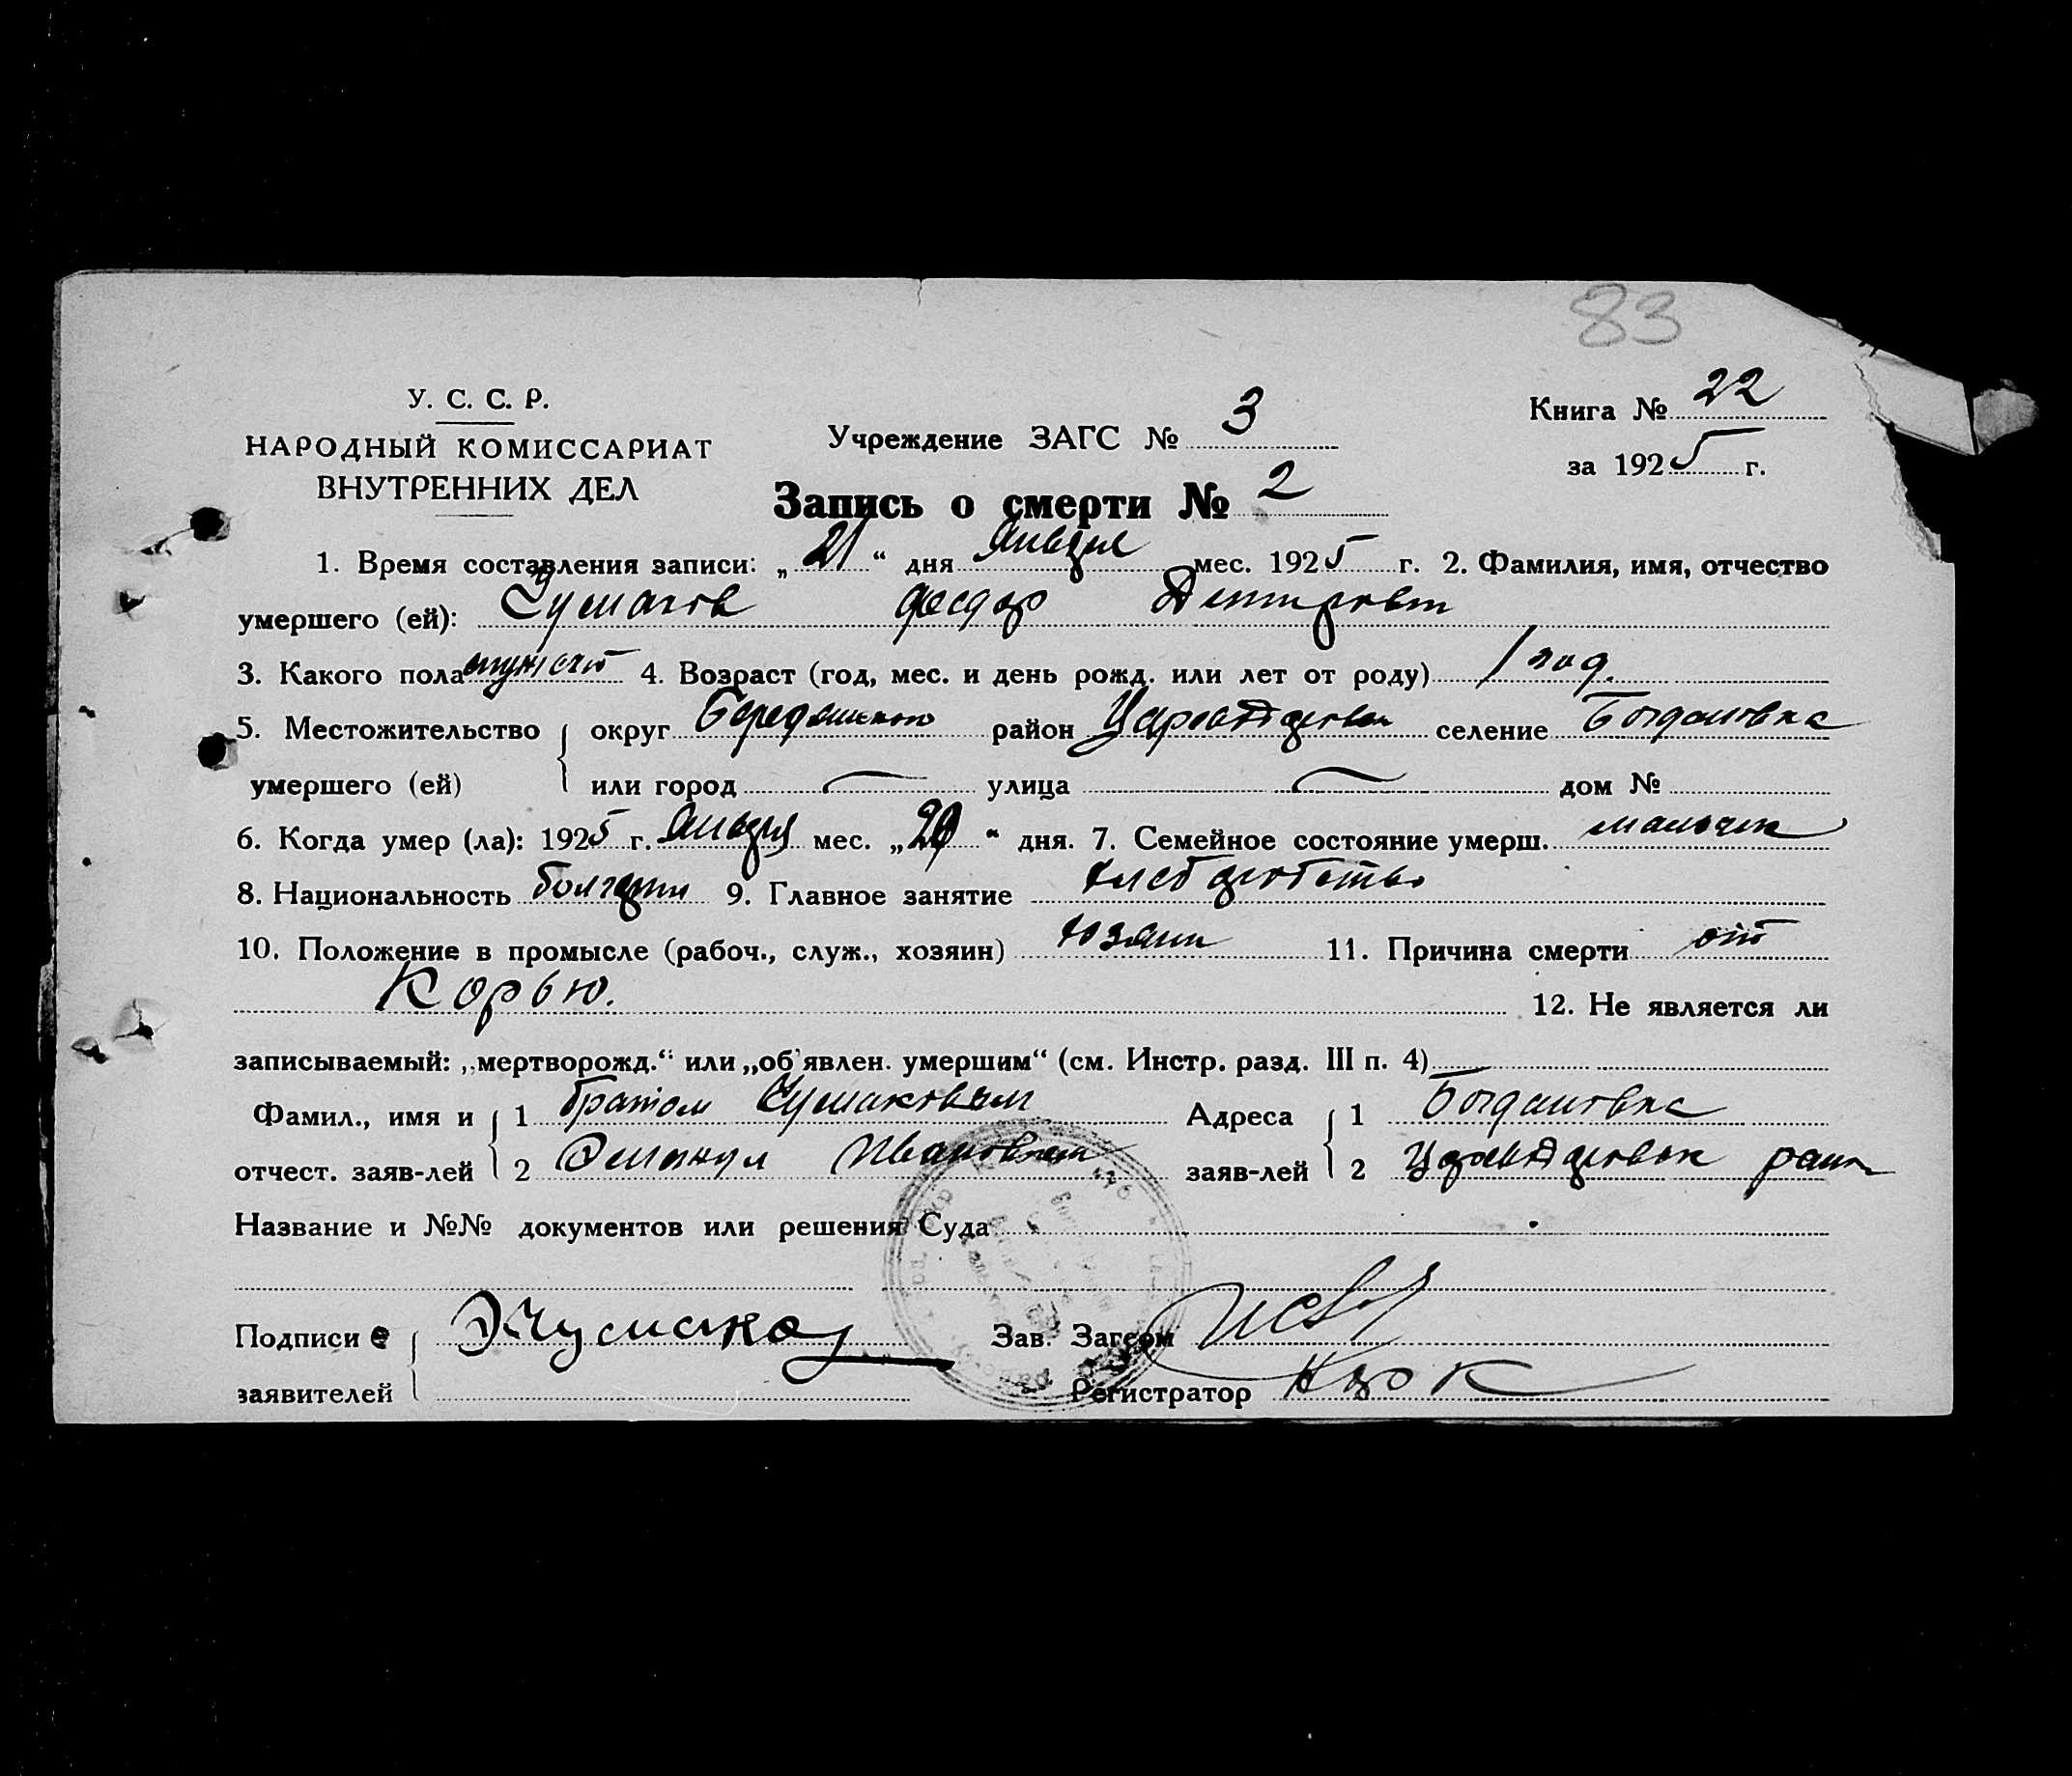 83
У. С. С. Р.
НАРОДНЫЙ КОМИССАРИАТ
ВНУТРЕННИХ ДЕЛ
Учреждение ЗАГС № 3
Книга № 22
за 1925 г.
Запись о смерти № 2
1. Время составления записи: „21“ дня Января мес. 1925 г. 2. Фамилия, имя, отчество
умершего (ей): Чумаков Федор Дмитровит
3. Какого пола мужст 4. Возраст (год, мес. и день рожд. или лет от роду) 1 год.
5. Местожительство округ район селение Богдановка
умершего (ей) или город — улица — дом №
6. Когда умер (ла): 1925 г. Января мес. „20“ дня. 7. Семейное состояние умерш. мальчик
8. Национальность болгарин 9. Главное занятие хлебаробство
10. Положение в промысле (рабоч., служ., хозяин) хозяин 11. Причина смерти от
Корью. 12. Не является ли
записываемый: „мертворожд.“ или „об'явлен. умершим“ (см. Инстр. разд. III п. 4)
Фамил., имя и 1 братом Чумаковым Адреса 1 Богдановка
отчест. заяв-лей 2 Ивановичем заяв-лей 2 раион
Название и №№ документов или решения Суда
Подписи Э.Чумаков Зав. Загсом
заявителей Регистратор